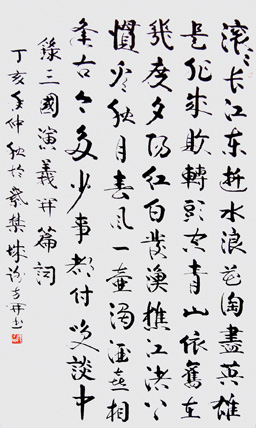 滚滚长江东逝水浪花淘盡英雄
是非成敗轉头空青山依舊在
幾度夕阳红白髮漁樵江渚上
慣看秋月春风一壶濁酒喜相
逢古今多少事都付笑談中
錄三國演義开篇詞
丁亥年仲秋於